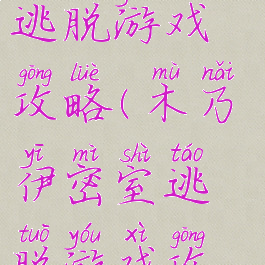 逃脱游戏
gōng lüè mù nǎi
攻略(木乃
yī mì shì táo
伊密室逃
tuō yóu xì gōng
脱游戏攻